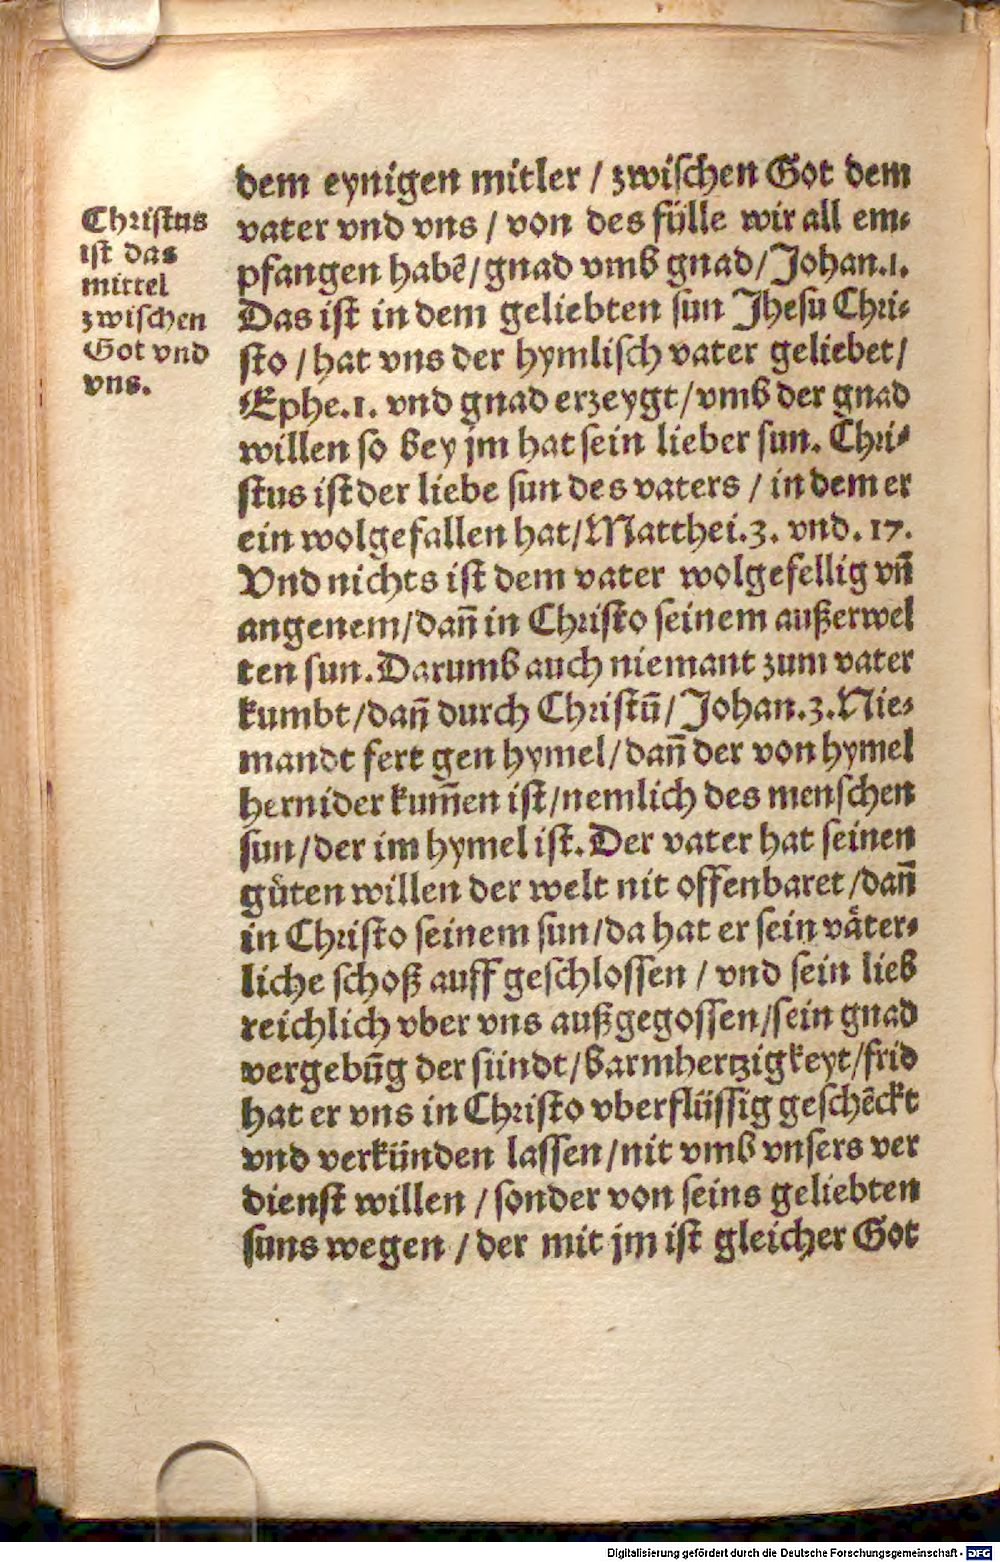 Christus
ist das
mittel
zwischen
Got vnd
vns.
dem eynigen mitler / zwischen Got dem
vater vnd vns / von des fülle wir all em-
pfangen habẽ/gnad vmb gnad/Johan.1.
Das ist in dem geliebten sun Jhesu Chri-
sto / hat vns der hymlisch vater geliebet/
Ephe.1. vnd gnad erzeygt/vmb der gnad
willen so bey jm hat sein lieber sun. Chri-
stus ist der liebe sun des vaters / in dem er
ein wolgefallen hat/Matthei.3. vnd. 17.
Vnd nichts ist dem vater wolgefellig vñ
angenem/dañ in Christo seinem außerwel
ten sun. Darumb auch niemant zum vater
kumbt/dañ durch Christũ/Johan.3.Nie-
mandt fert gen hymel/dañ der von hymel
hernider kum̃en ist/nemlich des menschen
sun/der im hymel ist. Der vater hat seinen
gůten willen der welt nit offenbaret/dañ
in Christo seinem sun/da hat er sein väter-
liche schoß auff geschlossen / vnd sein lieb
reichlich vber vns außgegossen/sein gnad
vergebũg der sündt/barmhertzigkeyt/frid
hat er vns in Christo vberflüssig geschẽckt
vnd verkünden lassen/nit vmb vnsers ver
dienst willen / sonder von seins geliebten
suns wegen / der mit jm ist gleicher Got
Digitalisierung gefördert durch die Deutsche Forschungsgemeinschaft - DFG